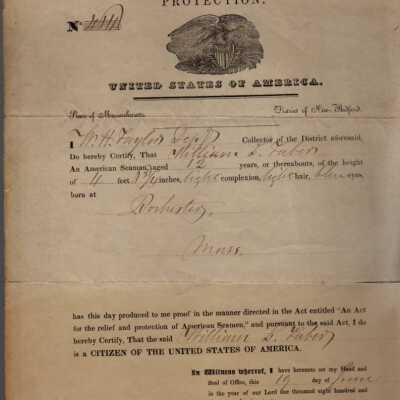 PROTECTION.
No
UNITED STATES OF AMERICA.
State of Massachusetts. District of New-Bedford.
I W. H. Taylor Dep Collector of the District aforesaid,
Do hereby Certify, That William S. Taber
An American Seaman, aged 12 years, or thereabouts, of the height
of 4 feet 3 3/4 inches, light complexion, light hair, blue eyes,
born at
Rochester,
Mass.
has this day produced to me proof in the manner directed in the Act entitled "An Act
for the relief and protection of American Seamen," and pursuant to the said Act, I do
hereby Certify, That the said William S. Taber
is a CITIZEN OF THE UNITED STATES OF AMERICA.
In Witness whereof, I have hereunto set my Hand and
Seal of Office, this 19 day of June
in the year of our Lord one thousand eight hundred and